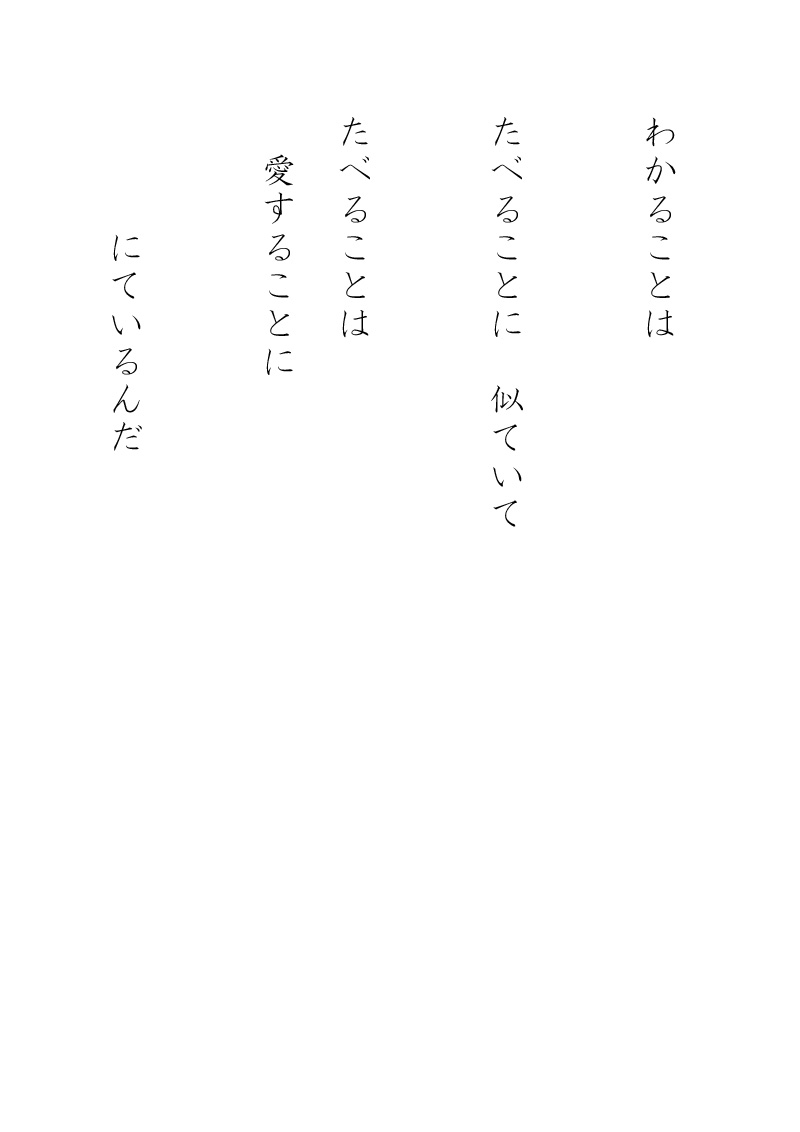 わかることは
たべることに　似ていて
たべることは
愛することに
にているんだ